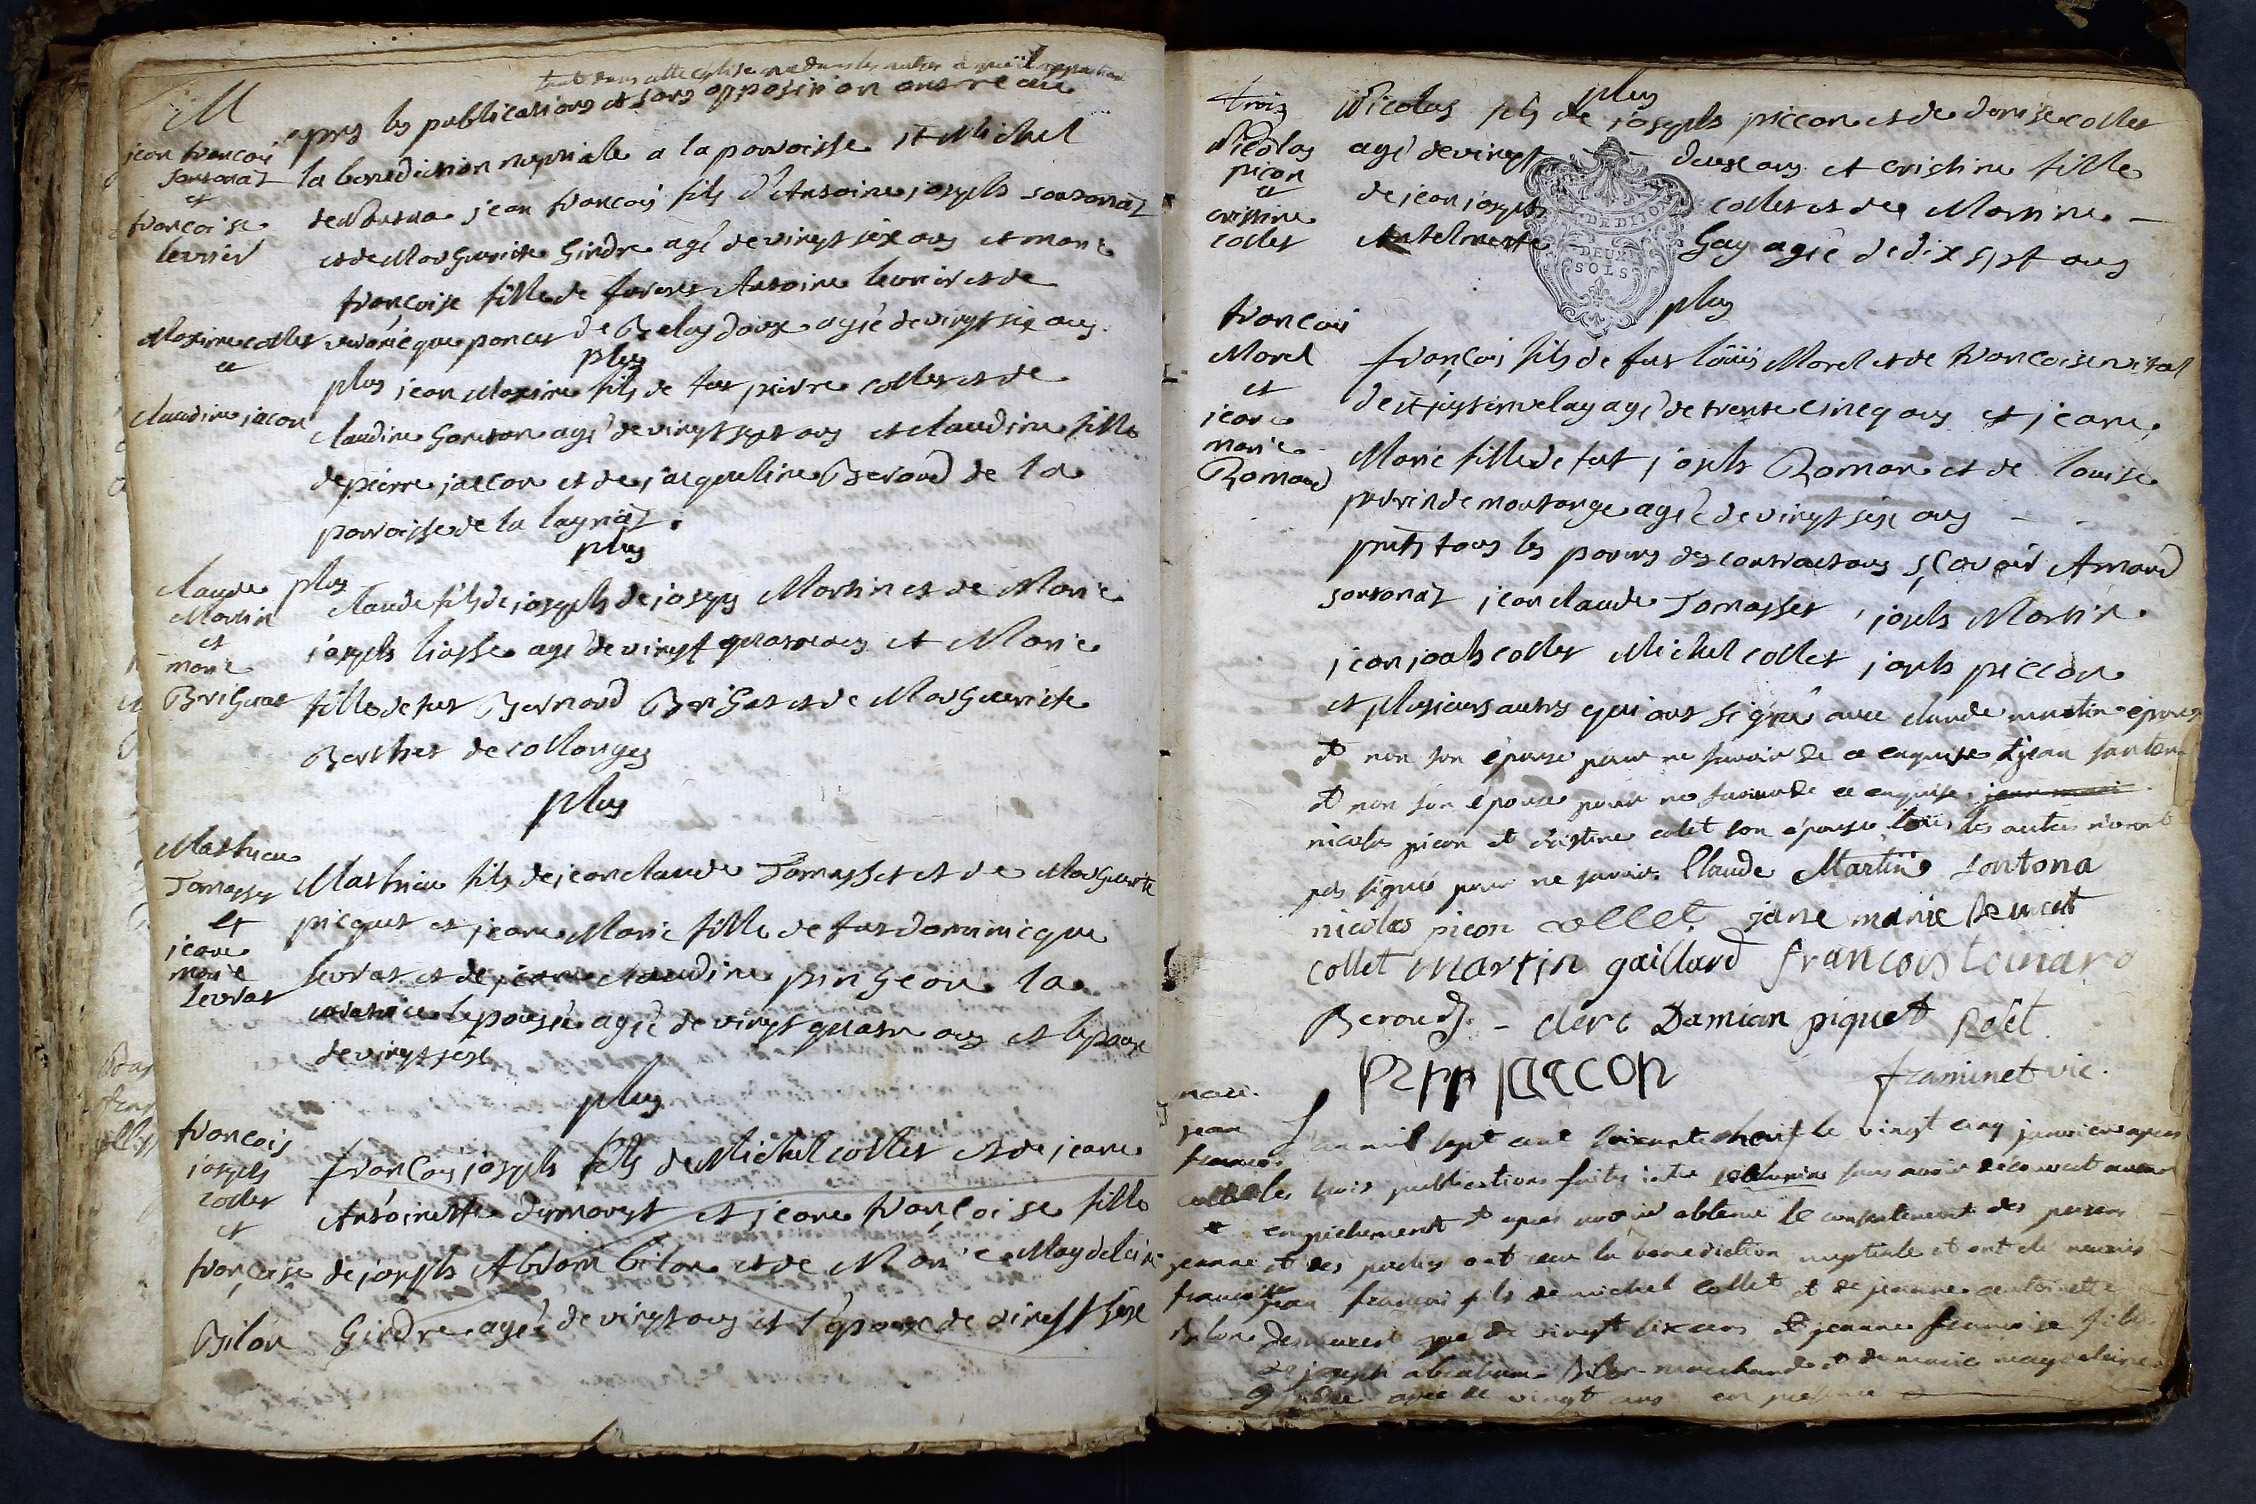 tant dans cette église que dans les autres à qui il appartient
M
après les publications et sans opposition ont reçu
jean francois
sontonaz
et
francoise
levrier
la benediction nuptiale a la parroisse st Michel
de jean francois fils d'Antoine joseph sontonaz
et de Marguerite Girdre agé de vingt six ans et marie
françoise fille de Antoine levrier et de
ponces de agée de vingt six ans
plus
Maxime collet
et
claudine jacon
plus jean Maxime fils de fut pierre collet et de
claudine gonton agé de vingt sept ans et claudine fille
de pierre jaccon et de jacqueline Beroud de la
parroisse de la lagniaz.
plus
claude
Martin
et
marie
Briguat
plus Claude fils de joseph de joseph Martin et de Marie
joseph liasse agé de vingt quatre ans et Marie
fille de fut Bernard Brigat et de Marguerite
Berthet de collonges
plus
Mathieu
Tomasset
et
jeane
marie
levrat
Mathieu fils de jean claude Tomasset et de Marguerite
picquet et jeane Marie fille de fut dominicque
levrat et de jeane claudine pingeon la
l'epousée agée de vingt quatre ans et l'epoux
de vingt sept
plus
francois
joseph
collet
et
françoise
Bilon
françois joseph fils de Michel collet et de jeane
Antoinette desmarest et jeane françoise fille
de joseph Abram bilon et de Marie Magdeleine
Girdre agée de vingt ans et l'epoux de vingt six
plus
trois
Nicolas
picon
et
cristine
collet
Nicolas fils de joseph piccon et de denise collet
agé de vingt deux ans et cristine fille
de jean joseph collet et de Martine
Antelmette Gay agée de dix sept ans
DE DIJON
DEUX
SOLS
plus
francois
Morel
et
jeane
marie
Romand
françois fils de fut loüis Morel et de francoise vital
de st agé de trente cincq ans et jeane
Marie fille de fut joseph Roman et de louise
perrin de montange agée de vingt six ans
pnts tous les parens des contractans sçavoir Amand
sontonaz jean claude Tomasset joseph Martin
jean joseph collet Michel collet joseph piccon
et plusieurs autres qui ont signé avec claude martin epoux
et non son épouse pour ne savoir de ce enquise et jean sonton
et non son épouse pour ne savoir de ce enquise jean mari
nicolas picon et cristine colet son épouse les autres n'ont
pas signé pour ne savoir. Claude Martin Sontona
nicolas picon collet jane marie Romant
collet Martin gaillard francois tomaro
Beroud. - clerc Damian piquet Rolet
pierr jaccon
framinet vic.
mari.
jean
francois
collet
et
jeanne
francoise
Bilon
L'an mil sept cent soixante neuf le vingt cinq janvier apres
les trois publications faites sans avoir découvert aucun
empechement et apres avoir obtenu le consentement des parens
et des parties ont reçu la benediction nuptiale et ont été mariés
jean francois fils de michel collet et de jeanne antoinette
desmarest agé de vingt six ans et jeanne francoise fille
de joseph abraham Bilon marchand et de marie magdeleine
girdre agée de vingt ans en presence